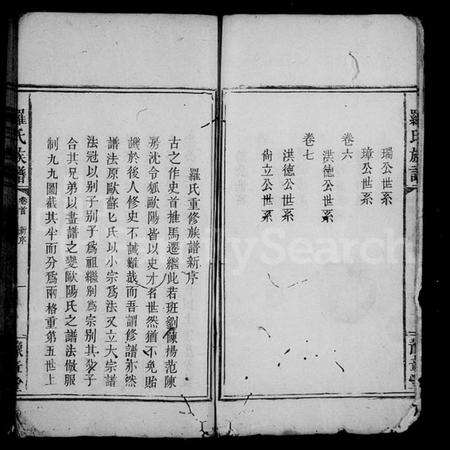 羅氏族譜
瑞公世系
璋公世系
卷六
洪德公世系
卷七
洪德公世系
尚立公世系
羅氏重修族譜新序
古之作史首推馬遷繼此若班劉陳揚范陳
房沈令狐歐陽皆以史才名世然猶不免貽
譏於後人修史不誠難哉而吾謂修譜亦然
譜法原歐蘇匕氏以小宗為法又立大宗譜
法冠以别子别子為祖繼别為宗别其衆子
合其兄弟以盡譜之變歐陽氏之譜法倣服
制九九圖截其半而分為兩格重第五世上
羅氏族譜
卷首
新序